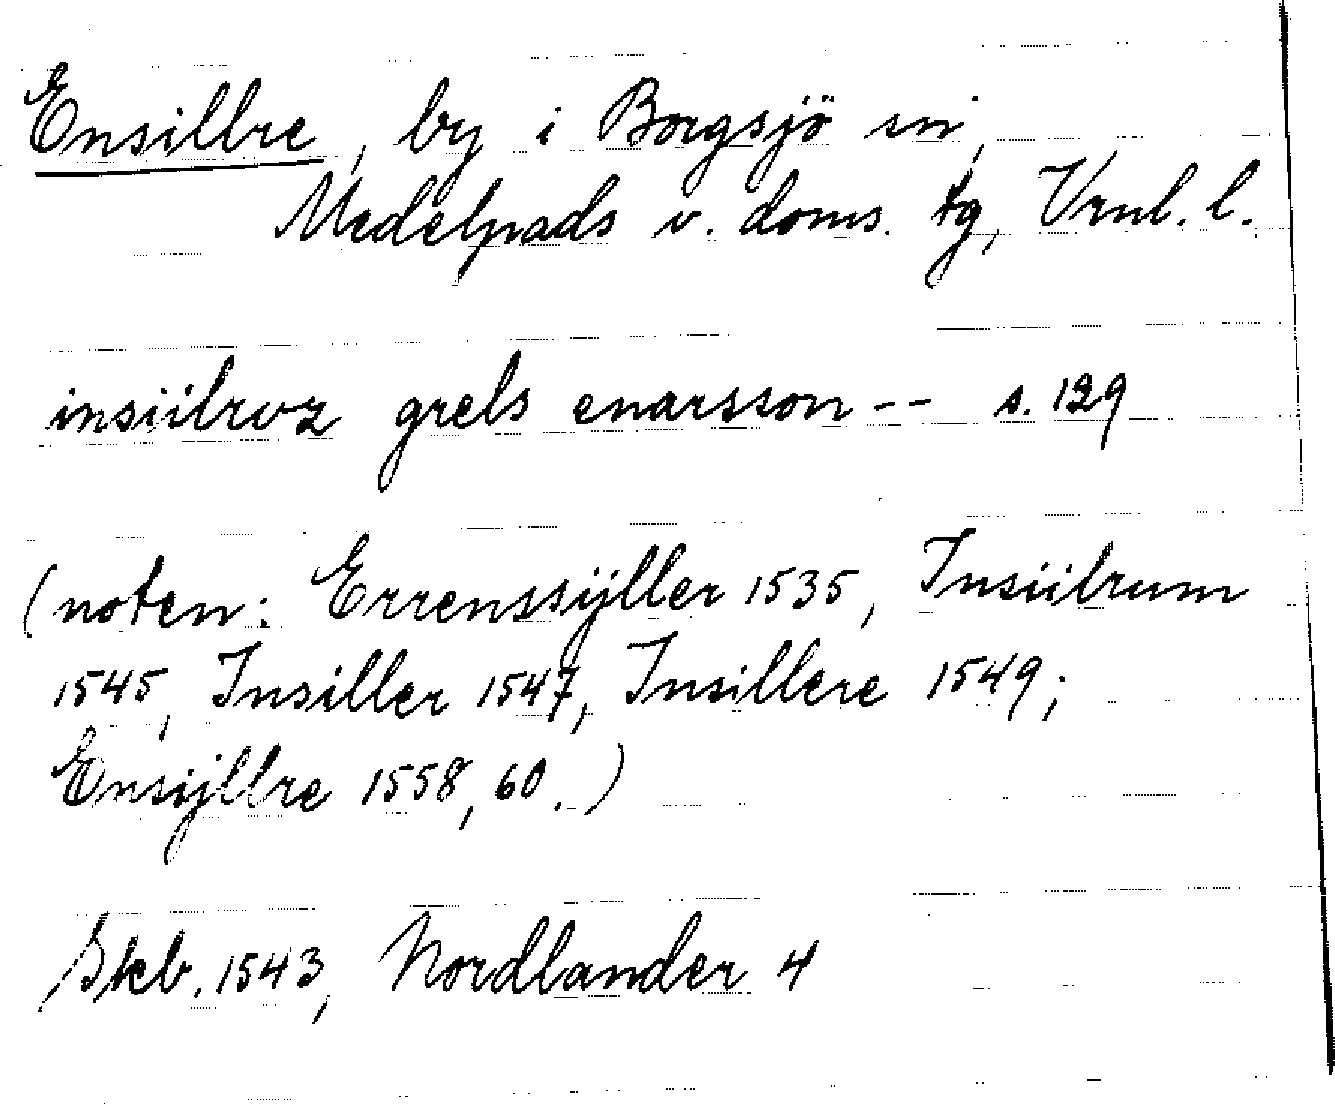 Ensillre, by i Borgsjö sn,
Medelpads v. doms. tg, Vrnl. l.
insiilroz grels enarsson -- s. 129
(noten: Errenssÿller 1535, Insiilrum
1545, Insiller 1547, Insillere 1549;
Ensÿllre 1558, 60.)
Skb. 1543, Nordlander 4